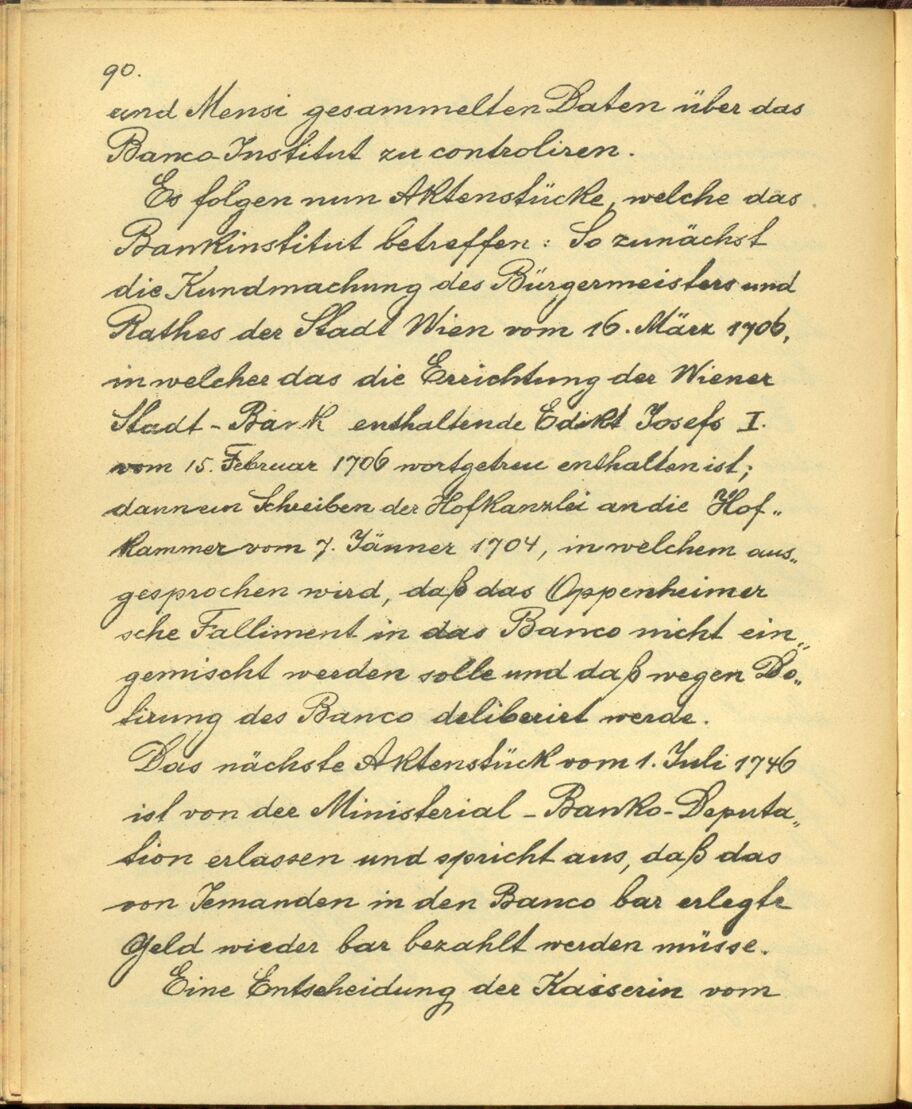 90.
und Mensi gesammelten Daten über das
Banco-Institut zu controliren.
Es folgen nun Aktenstücke, welche das
Bankinstitut betreffen: So zunächst
die Kundmachung des Bürgermeisters und
Rathes der Stadt Wien vom 16. März 1706,
in welcher das die Errichtung der Wiener
Stadt-Bank enthaltende Edikt Josefs I.
vom 15. Februar 1706 wortgetreu enthalten ist;
dann ein Schreiben der Hofkanzlei an die Hof„
kammer vom 7. Jänner 1704, in welchem aus„
gesprochen wird, daß das Oppenheimer
sche Falliment in das Banco nicht ein„
gemischt werden solle und daß wegen Do„
tirung des Banco deliberirt werde.
Das nächste Aktenstück vom 1. Juli 1746
ist von der Ministerial-Banko-Deputa„
tion erlassen und spricht aus, daß das
von Jemanden in den Banco bar erlegte
Geld wieder bar bezahlt werden müsse.
Eine Entscheidung der Kaiserin vom